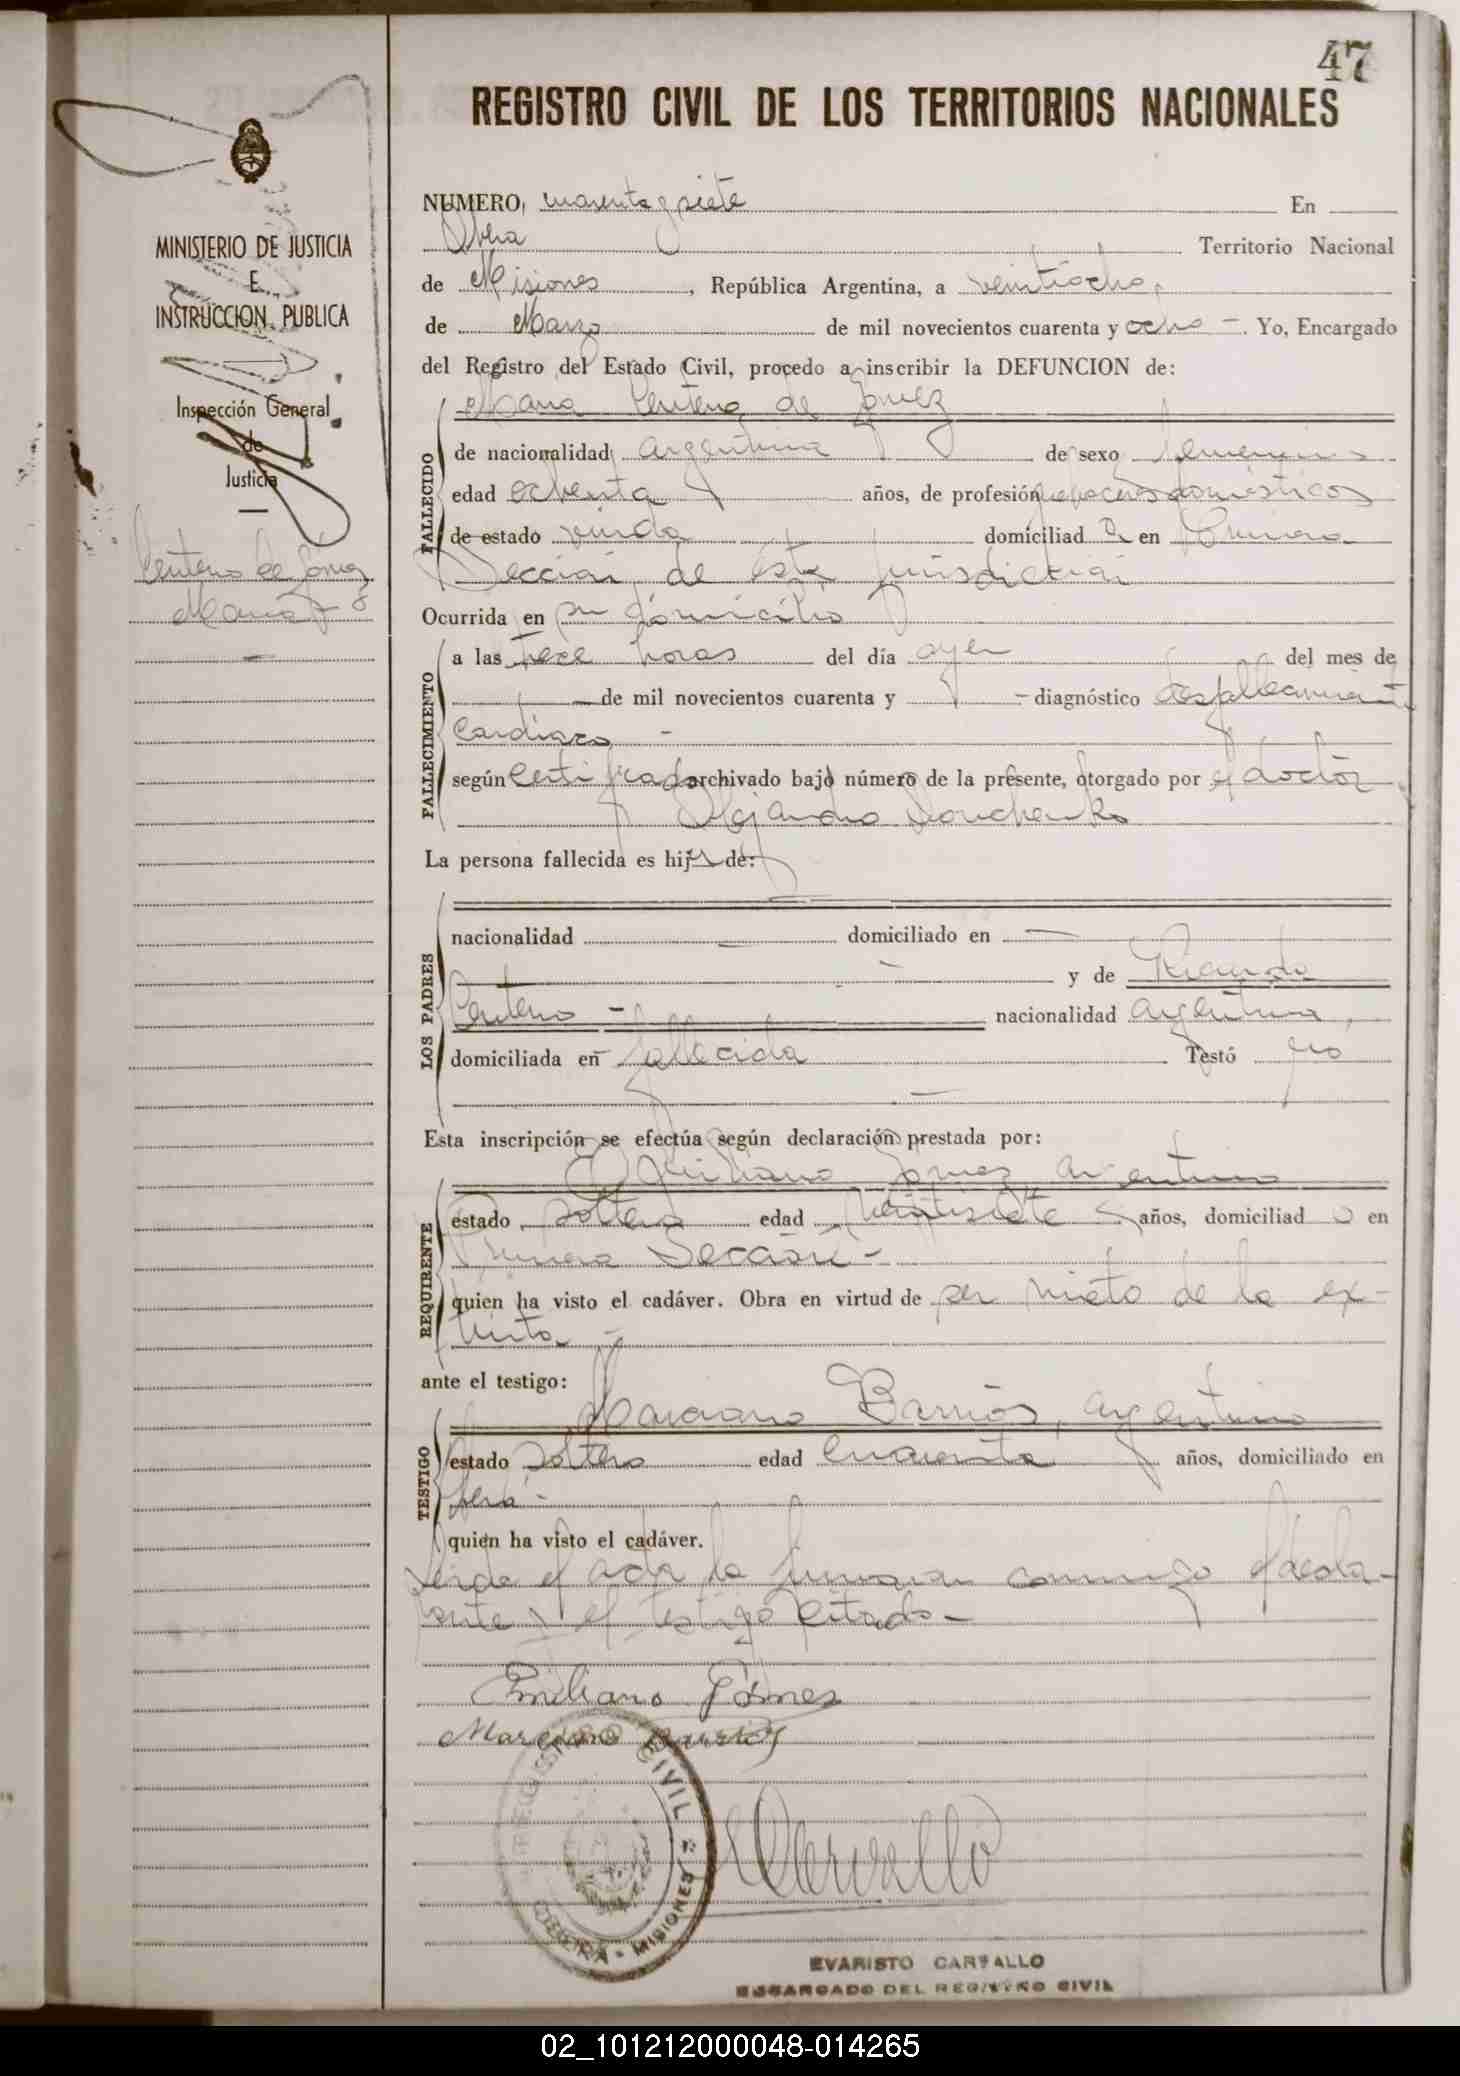 47
REGISTRO CIVIL DE LOS TERRITORIOS NACIONALES
MINISTERIO DE JUSTICIA
E
INSTRUCCION PUBLICA
Inspección General
de
Justicia
Centeno de Gómez
María
NUMERO, cuarenta y siete En
Oberá Territorio Nacional
de Misiones, República Argentina, a veintiocho,
de Marzo de mil novecientos cuarenta y ocho -. Yo, Encargado
del Registro del Estado Civil, procedo a inscribir la DEFUNCION de:
María Centeno de Gómez
FALLECIDO
de nacionalidad argentina de sexo femenino
edad ochenta años, de profesión quehaceres domésticos
de estado viuda domiciliad a en Primera
Sección de esta jurisdicción
Ocurrida en su domicilio
FALLECIMIENTO
a las trece horas del día ayer del mes de
de mil novecientos cuarenta y - diagnóstico desfallecimiento
cardíaco -
según certificado archivado bajo número de la presente, otorgado por el doctor
Alejandro
La persona fallecida es hija de:
LOS PADRES
nacionalidad — domiciliado en —
— y de
Centeno - nacionalidad argentina,
domiciliada en fallecida Testó no
—
Esta inscripción se efectúa según declaración prestada por:
REQUIRENTE
Emiliano Gómez argentino
estado soltero edad veintisiete años, domiciliad o en
Primera Sección -
quien ha visto el cadáver. Obra en virtud de ser nieto de la ex-
tinta -
ante el testigo:
TESTIGO
Marciano Barrios, argentino
estado soltero edad cuarenta años, domiciliado en
Oberá -
quien ha visto el cadáver.
Leída el acta la firmaron conmigo el decla-
rante y el testigo citado -
Emiliano Gómes
Marciano Barrios
REGISTRO CIVIL
OBERA - MISIONES
Carvallo
EVARISTO CARVALLO
ENCARGADO DEL REGISTRO CIVIL
02_101212000048-014265